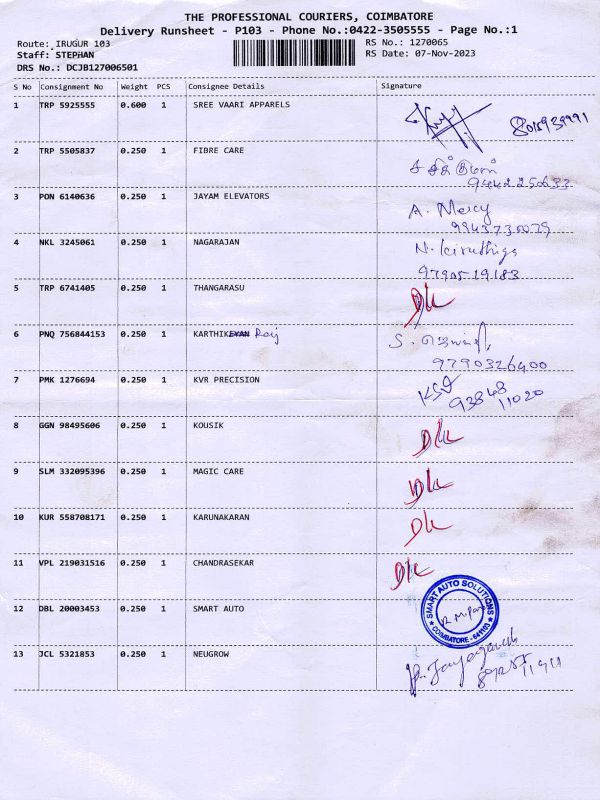 THE PROFESSIONAL COURIERS, COIMBATORE
Delivery Runsheet - P103 - Phone No.:0422-3505555 - Page No.:1
Route: IRUGUR 103 RS No.: 1270065
Staff: STEPHAN RS Date: 07-Nov-2023
DRS No.: DCJB127006501
S No Consignment No Weight PCS Consignee Details Signature
1 TRP 5925555 0.600 1 SREE VAARI APPARELS
2 TRP 5505837 0.250 1 FIBRE CARE
3 PON 6140636 0.250 1 JAYAM ELEVATORS A. Mercy
9943735079
4 NKL 3245061 0.250 1 NAGARAJAN
9790519183
5 TRP 6741405 0.250 1 THANGARASU
6 PNQ 756844153 0.250 1 KARTHIKEYAN Raj
9790326400
7 PMK 1276694 0.250 1 KVR PRECISION
93848
11020
8 GGN 98495606 0.250 1 KOUSIK
9 SLM 332095396 0.250 1 MAGIC CARE
10 KUR 558708171 0.250 1 KARUNAKARAN
11 VPL 219031516 0.250 1 CHANDRASEKAR
12 DBL 20003453 0.250 1 SMART AUTO SMART AUTO SOLUTIONS
COIMBATORE - 641103
13 JCL 5321853 0.250 1 NEUGROW